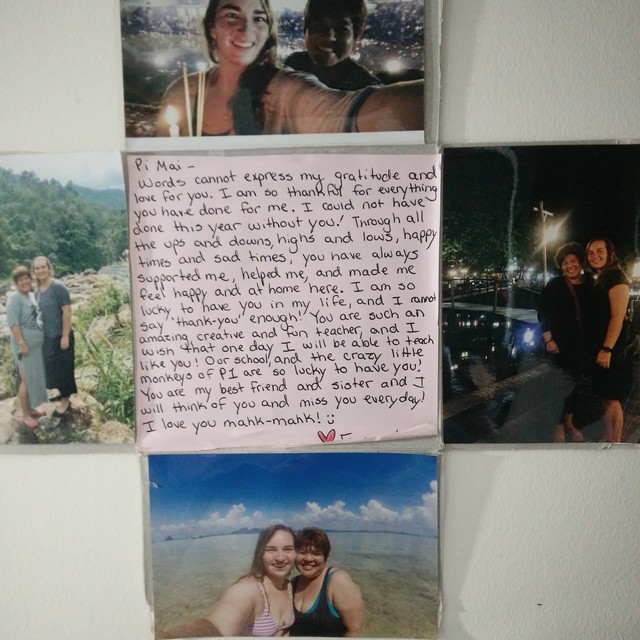 Pi Mai -
Words cannot express my gratitude and
love for you. I am so thankful for everything
you have done for me. I could not have
done this year without you! Through all
the ups and downs, highs and lows, happy
times and sad times, you have always
supported me, helped me, and made me
feel happy and at home here. I am so
lucky to have you in my life, and I cannot
say "thank-you" enough! You are such an
amazing creative and fun teacher, and I
wish that one day I will be able to teach
like you! Our school, and the crazy little
monkeys of P1 are so lucky to have you!
You are my best friend and sister and I
will think of you and miss you everyday!
I love you mahk-mahk! :)